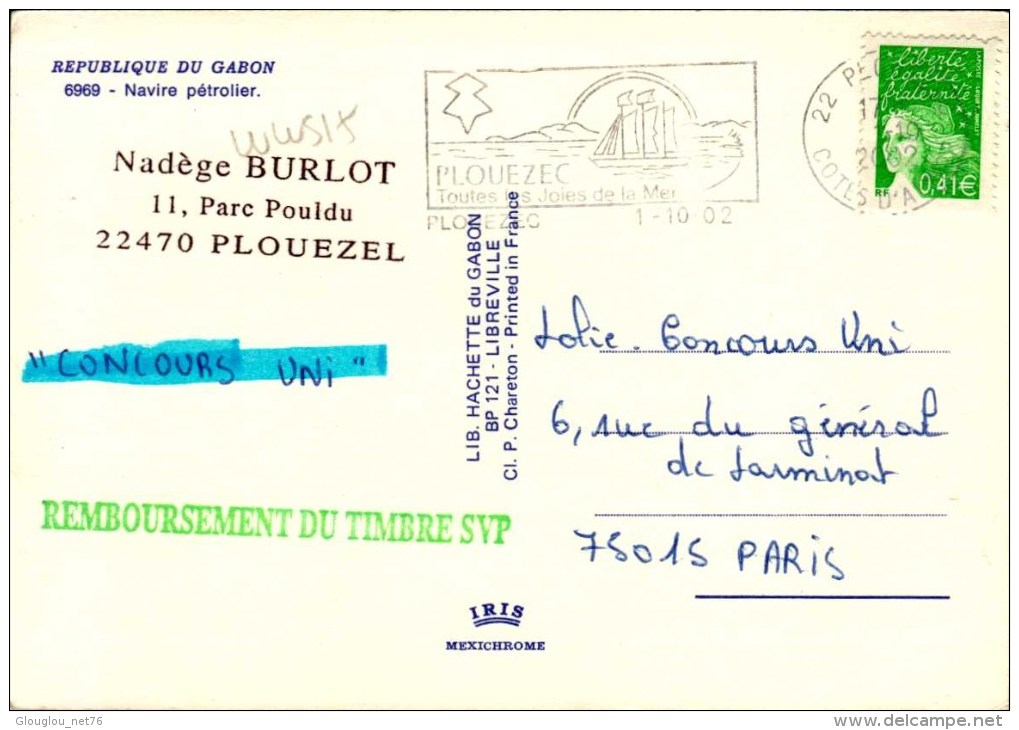 REPUBLIQUE DU GABON
6969 - Navire pétrolier.
Nadège BURLOT
11, Parc Pouldu
22470 PLOUEZEL
"CONCOURS UNI"
REMBOURSEMENT DU TIMBRE SVP
PLOUEZEC
Toutes les Joies de la Mer
PLOUEZEC 1-10 02
22
17
2002
COTES D'A
liberté
égalité
fraternité
RF 0,41€
LIB. HACHETTE du GABON
BP 121 - LIBREVILLE
Cl. P. Chareton - Printed in France
Lolie. Concours Uni
6, rue du général
de Larminat
75015 PARIS
IRIS
MEXICHROME
Glouglou_net76
www.delcampe.net